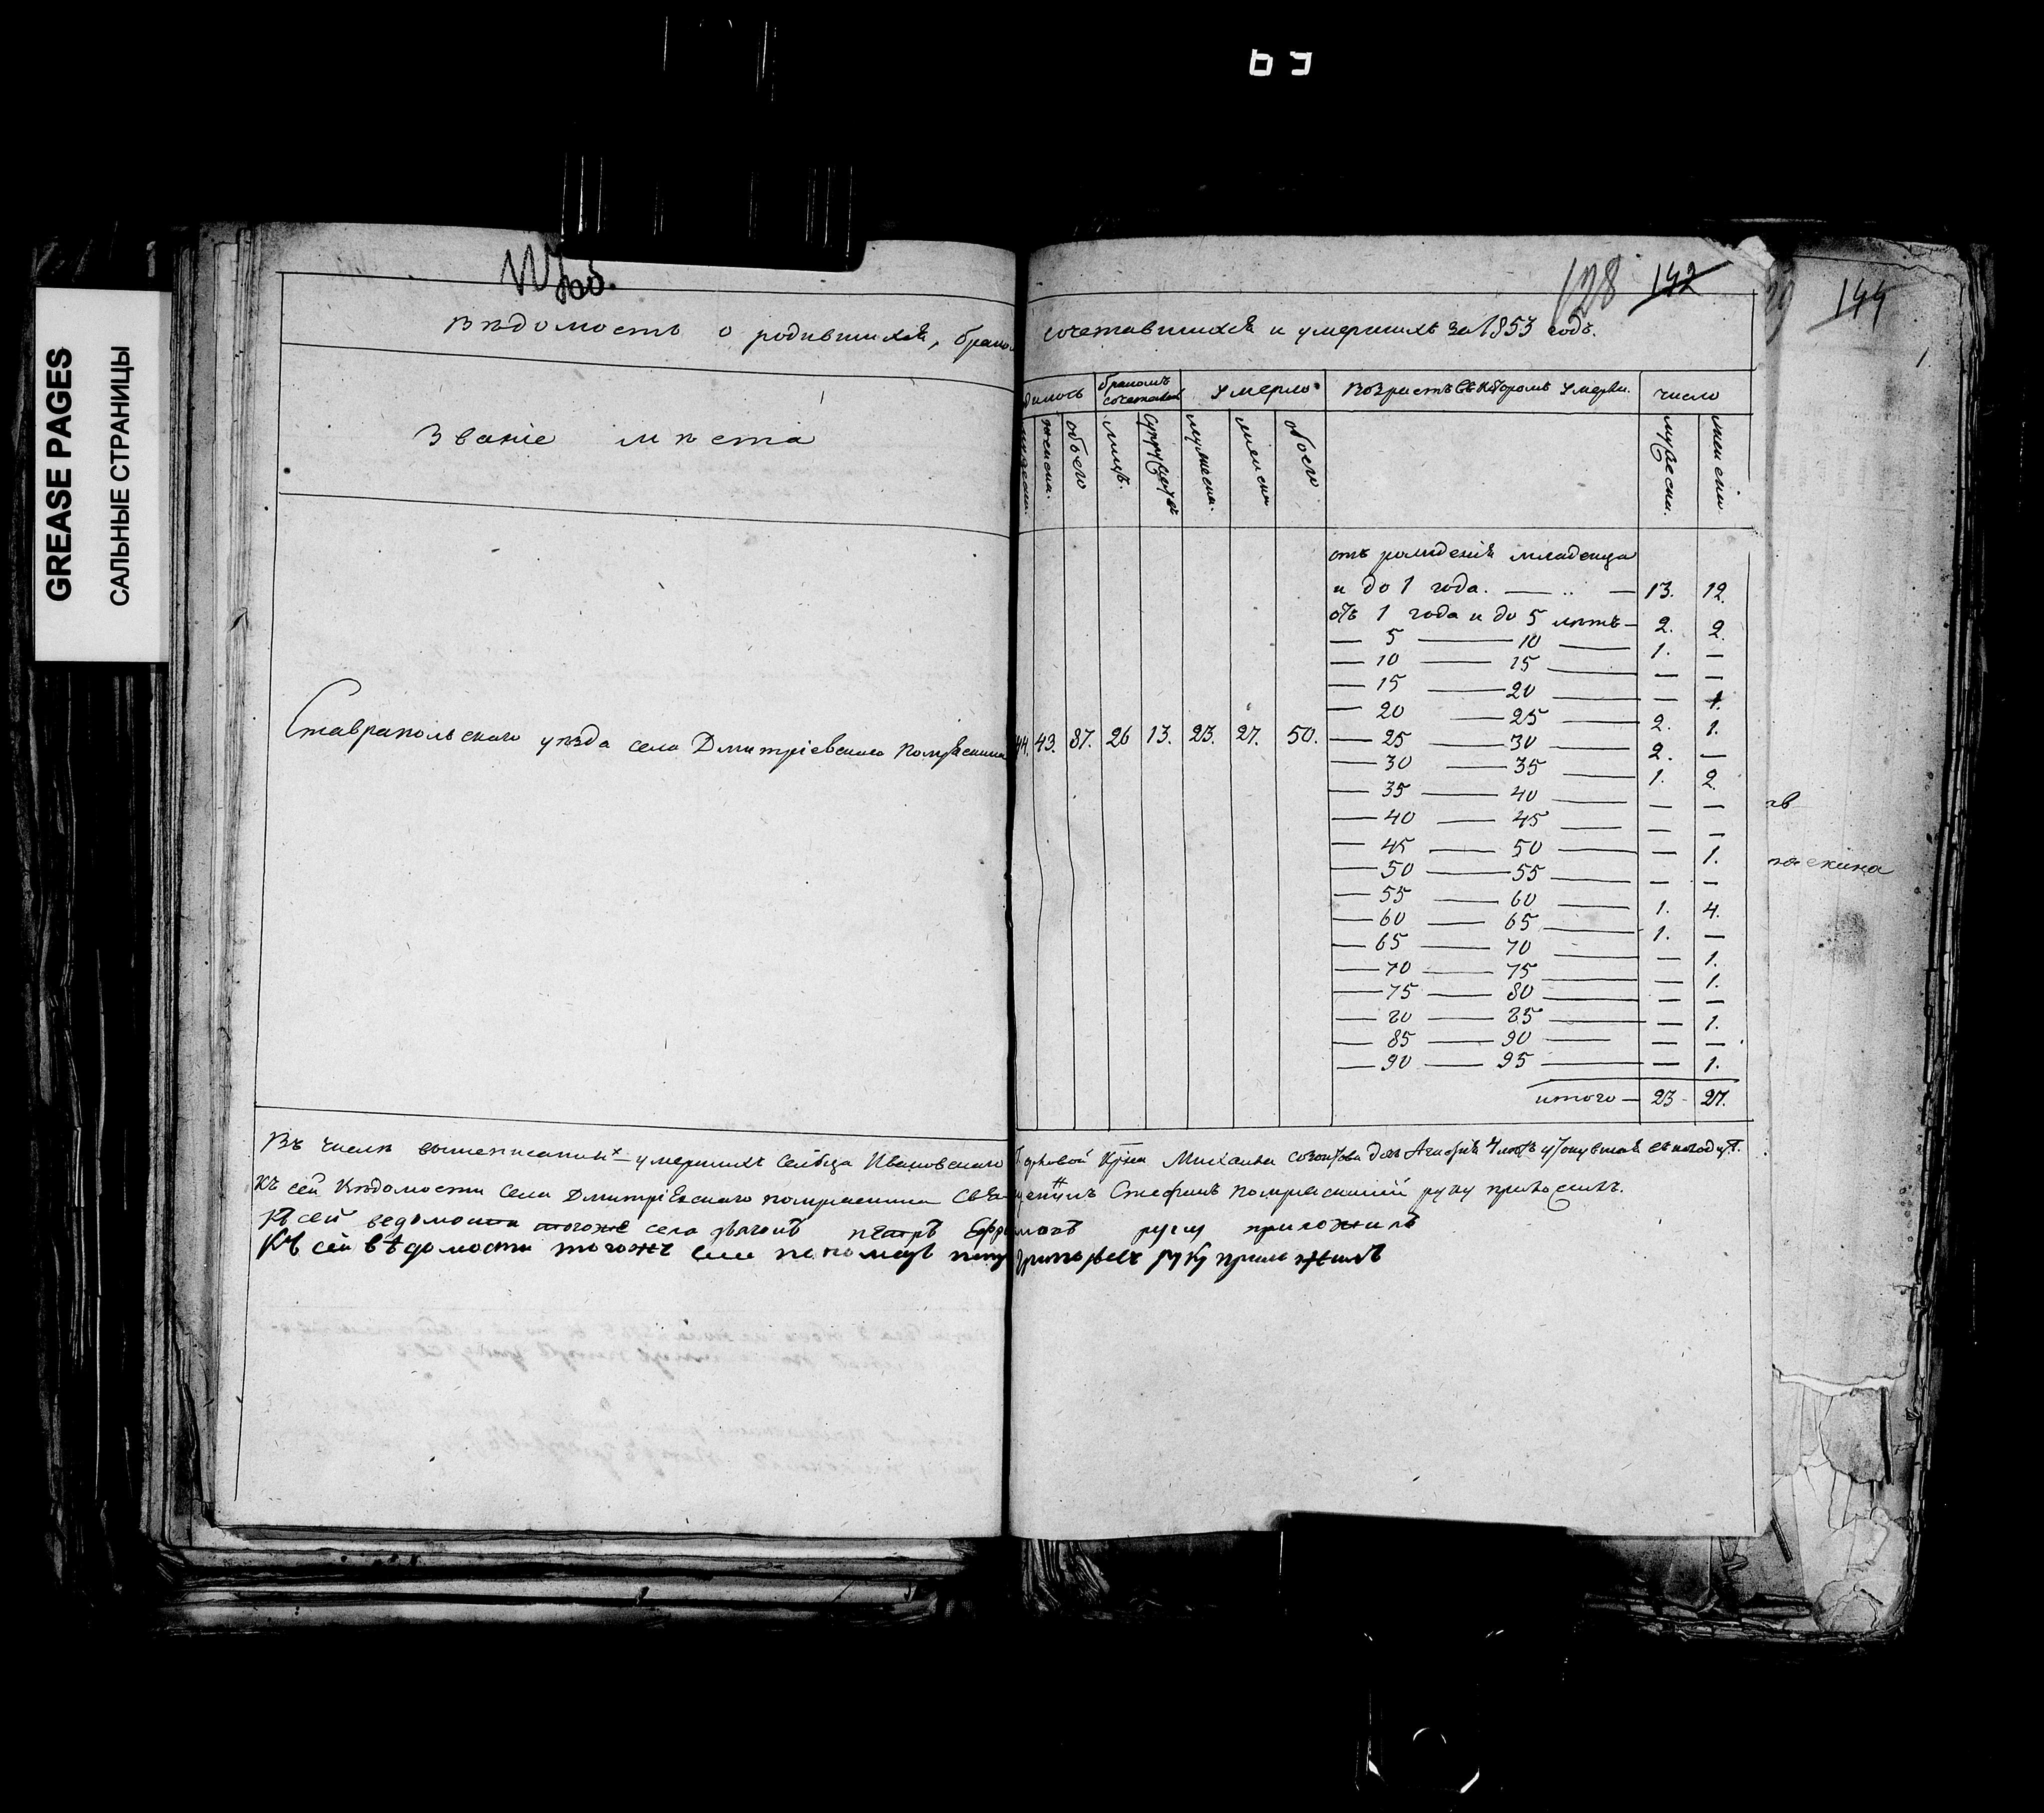 GREASE PAGES
САЛЬНЫЕ СТРАНИЦЫ
128 142
144
Вѣдомость о родившихся, брако сочетавшихся и умершихъ за 1853 годъ.
Званіе мѣста
дилось
бракомъ сочетавш
умерло
Возрастъ въ которомъ умерли.
число
женска.
обоего
лицъ.
Супружествъ
мужеска.
женска
обоего
мужеска.
женска
Ставропольскаго уѣзда села Дмитріевскаго Помряскина 44. 43. 87. 26 13. 23. 27. 50.
отъ рожденія младенца
и до 1 года. — 13. 12.
отъ 1 года и до 5 лѣтъ — 2. 2.
— 5 — 10 — 1. —
— 10 — 15 — — —
— 15 — 20 — — 1.
— 20 — 25 — 2. 1.
— 25 — 30 — 2. —
— 30 — 35 — 1. 2.
— 35 — 40 — — —
— 40 — 45 — — —
— 45 — 50 — — 1.
— 50 — 55 — — —
— 55 — 60 — 1. 4.
— 60 — 65 — 1. —
— 65 — 70 — — 1.
— 70 — 75 — — 1.
— 75 — 80 — — —
— 80 — 85 — — 1.
— 85 — 90 — — —
— 90 — 95 — — 1.
итого — 23 - 27.
Въ числѣ вышеписанных умершихъ сельца Ивановскаго Михаила дочь 4 лѣтъ
Къ сей Вѣдомости села Дмитріевскаго помряскина Священникъ Стефанъ Помряскинскій руку приложилъ.
Къ сей ведомости тогоже села дьяконъ петръ Ефремовъ руку приложилъ
Къ сей вѣдомости тогожъ села пономарь петръ Григорьевъ руку приложилъ